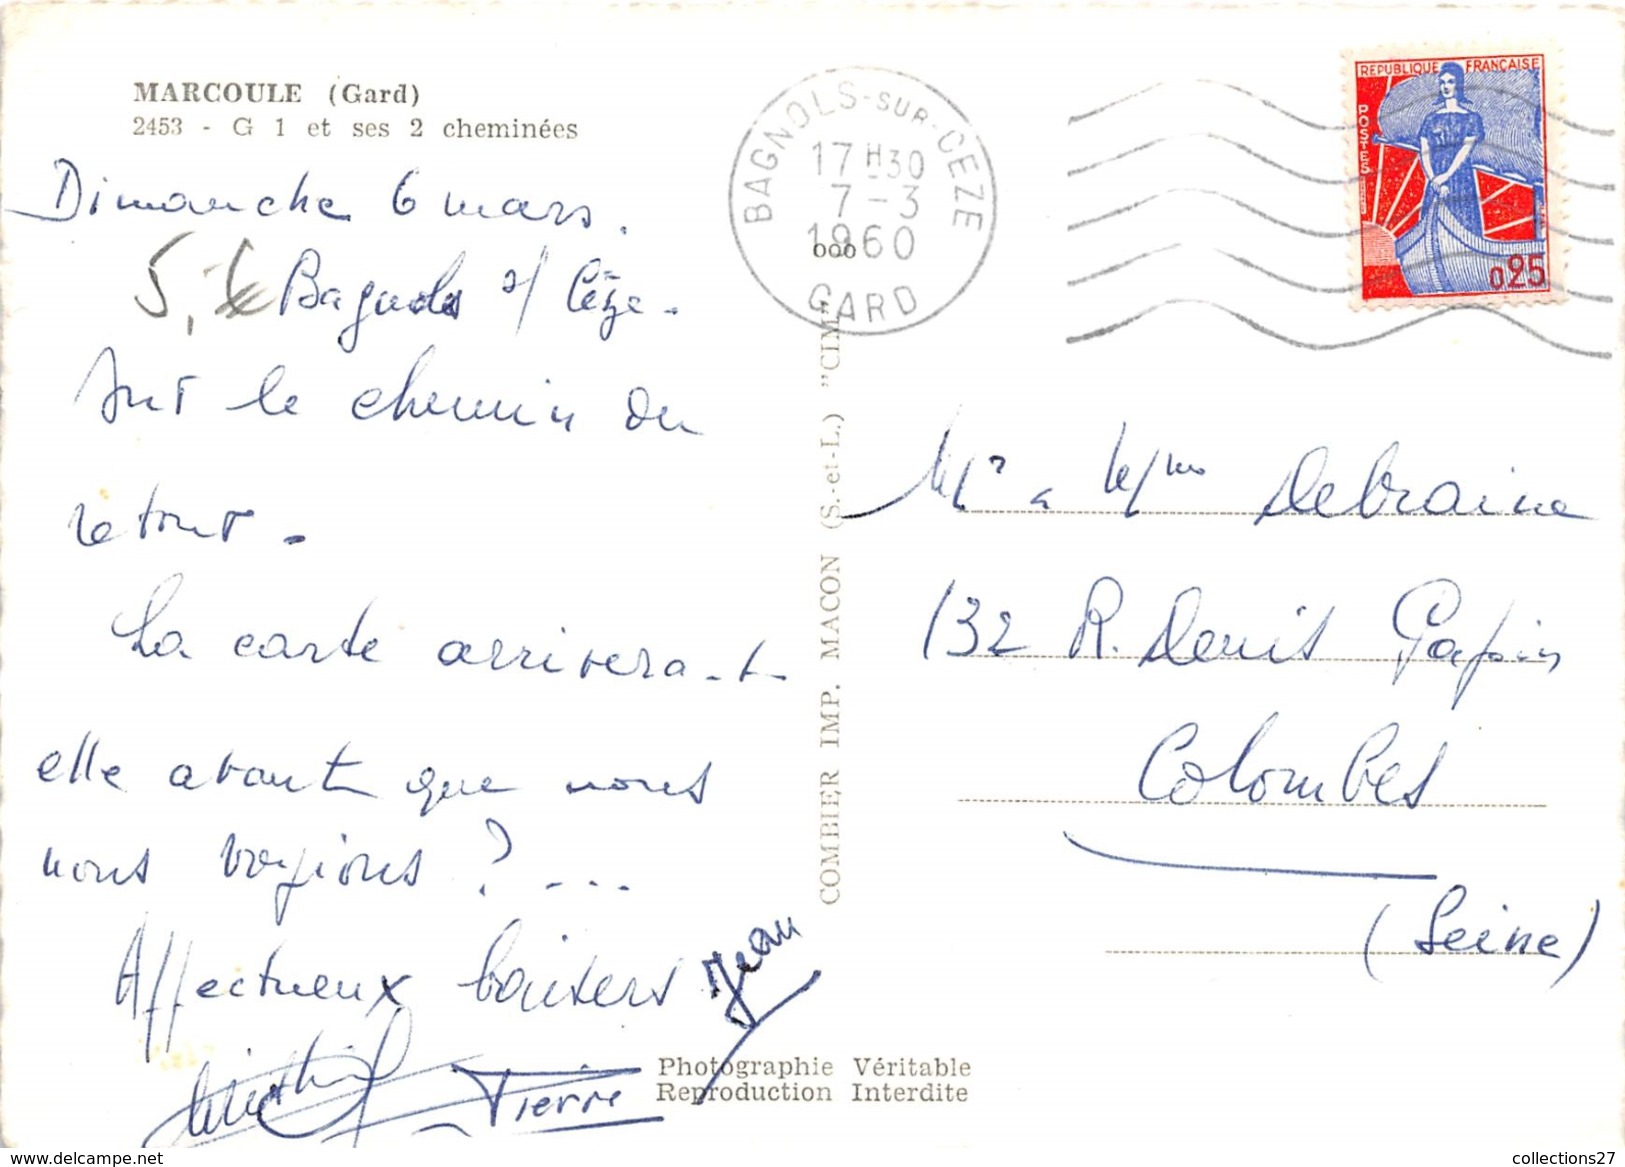 MARCOULE (Gard)
2453 - G 1 et ses 2 cheminées
Dimanche 6 mars.
5,
Bagnols s/ Cèze -
Sur le chemin du
retour -
La carte arrivera-t-
elle avant que nous
nous voyions ? - ...
Affectueux baisers
Jean
Pierre
BAGNOLS-SUR-CEZE
17H30
7-3
1960
000
GARD
REPUBLIQUE FRANÇAISE
POSTES
0.25
COMBIER IMP. MACON (S.-et-L.) "CIM"
Mr & Mme Debraine
132 R. Denis Papin
Colombes
(Seine)
Photographie Véritable
Reproduction Interdite
www.delcampe.net
collections27